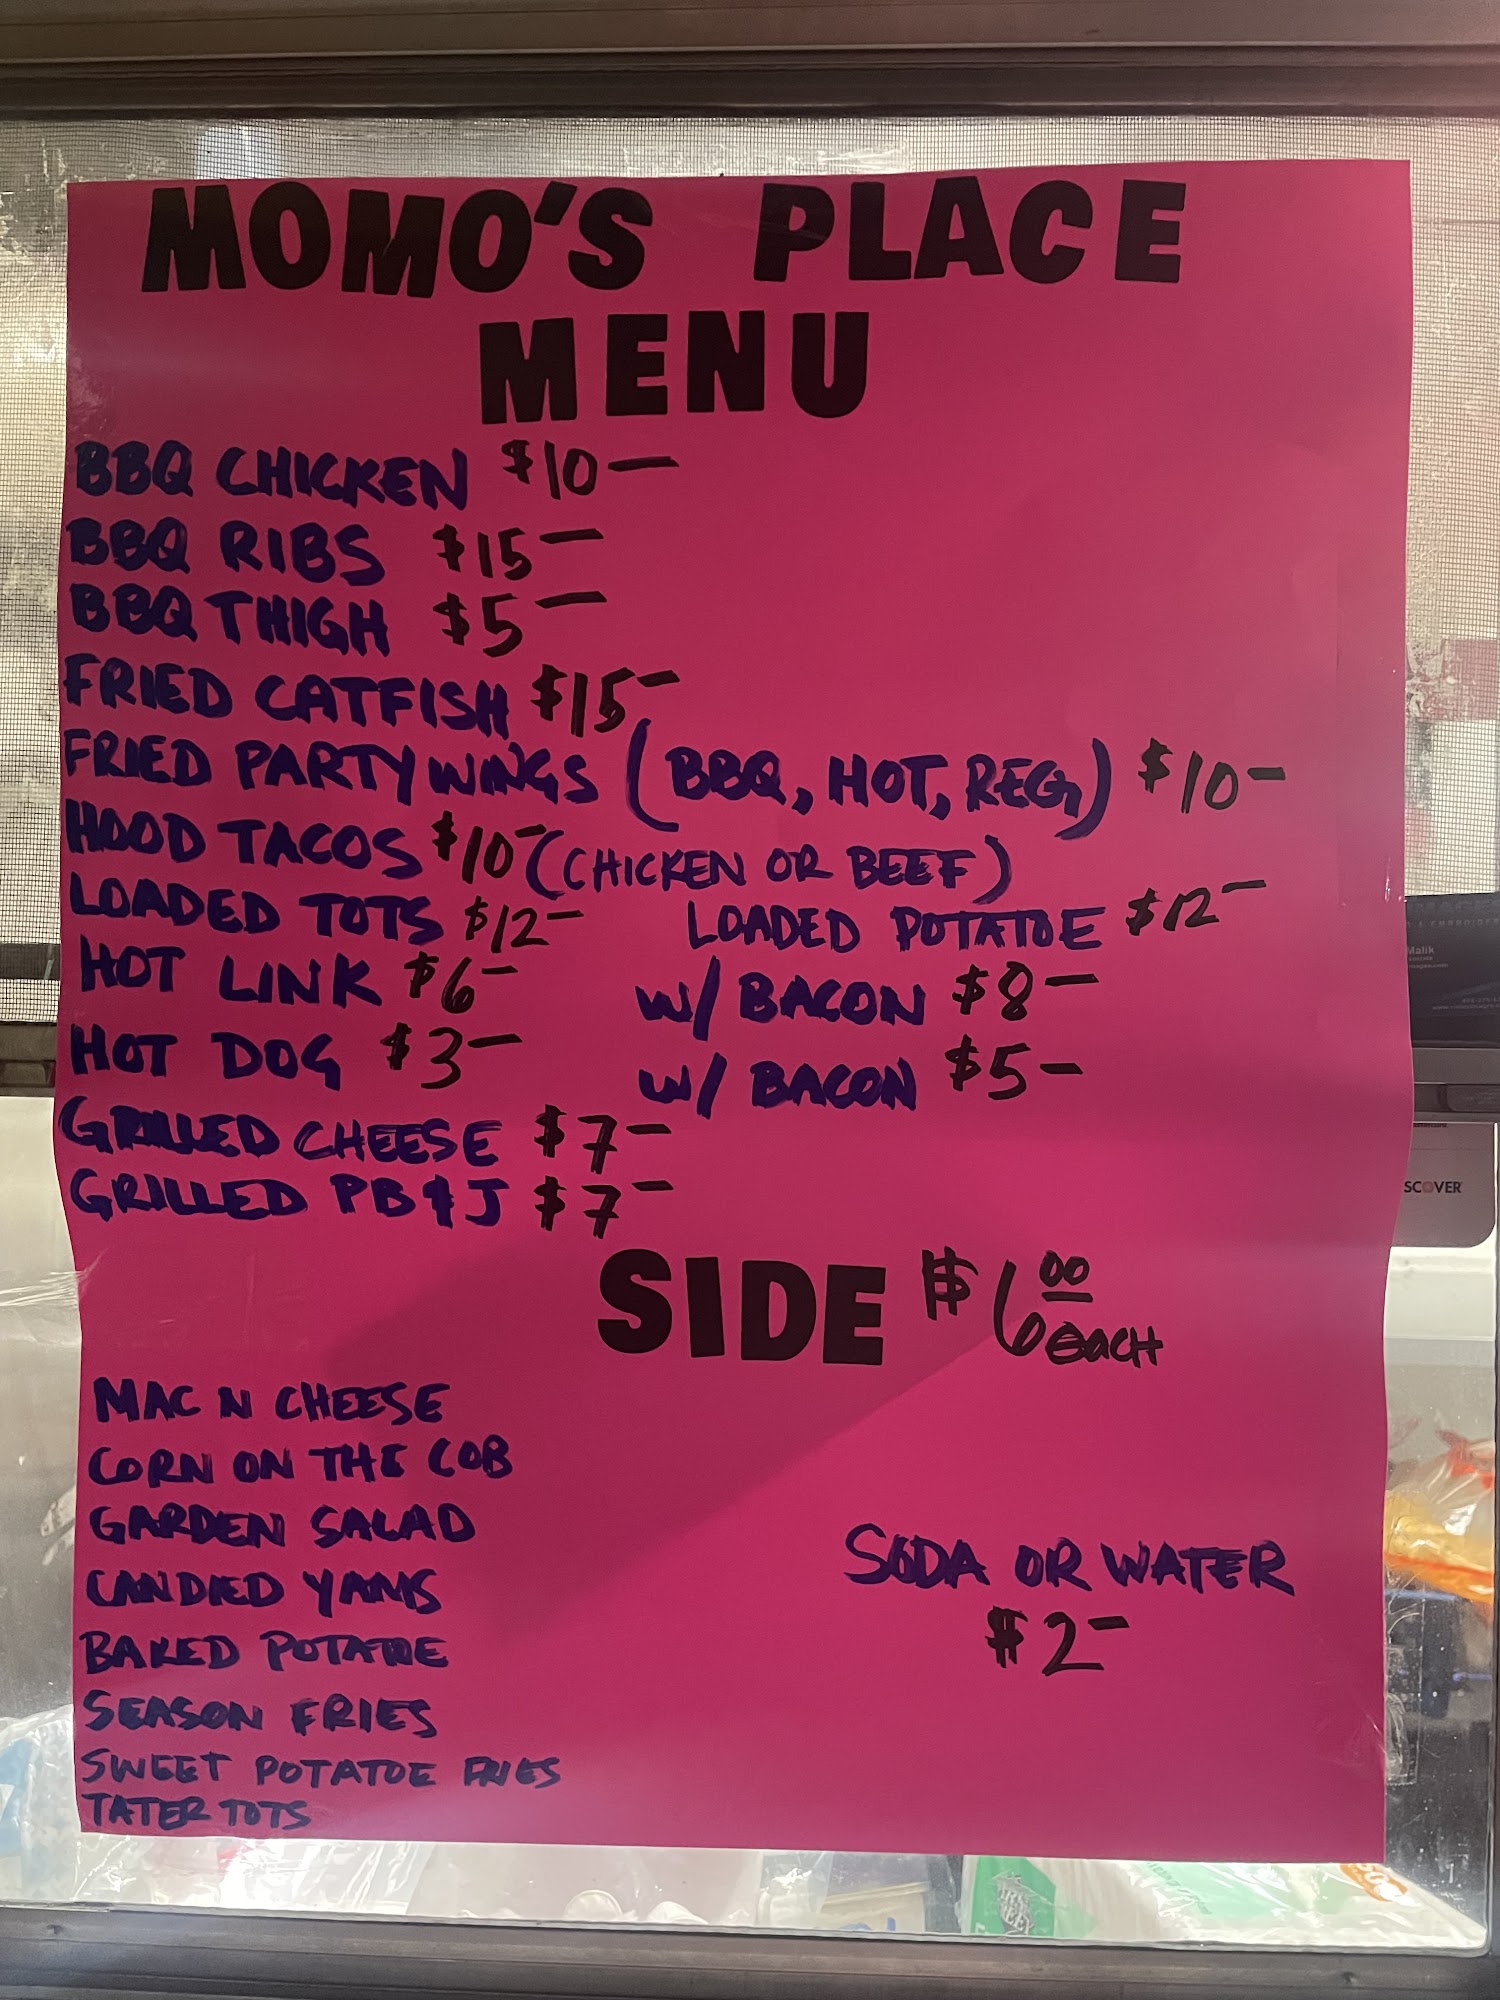 MOMO'S PLACE
MENU
BBQ CHICKEN $10—
BBQ RIBS $15—
BBQ THIGH $5—
FRIED CATFISH $15—
FRIED PARTY WINGS (BBQ, HOT, REG) $10—
HOOD TACOS $10— (CHICKEN OR BEEF)
LOADED TOTS $12— LOADED POTATOE $12—
HOT LINK $6— W/ BACON $8—
HOT DOG $3— W/ BACON $5—
GRILLED CHEESE $7—
GRILLED PB&J $7—
SIDE $6.00 EACH
MAC N CHEESE
CORN ON THE COB
GARDEN SALAD
CANDIED YAMS
BAKED POTATOE
SEASON FRIES
SWEET POTATOE FRIES
TATER TOTS
SODA OR WATER
$2—
Malik
SCOVER